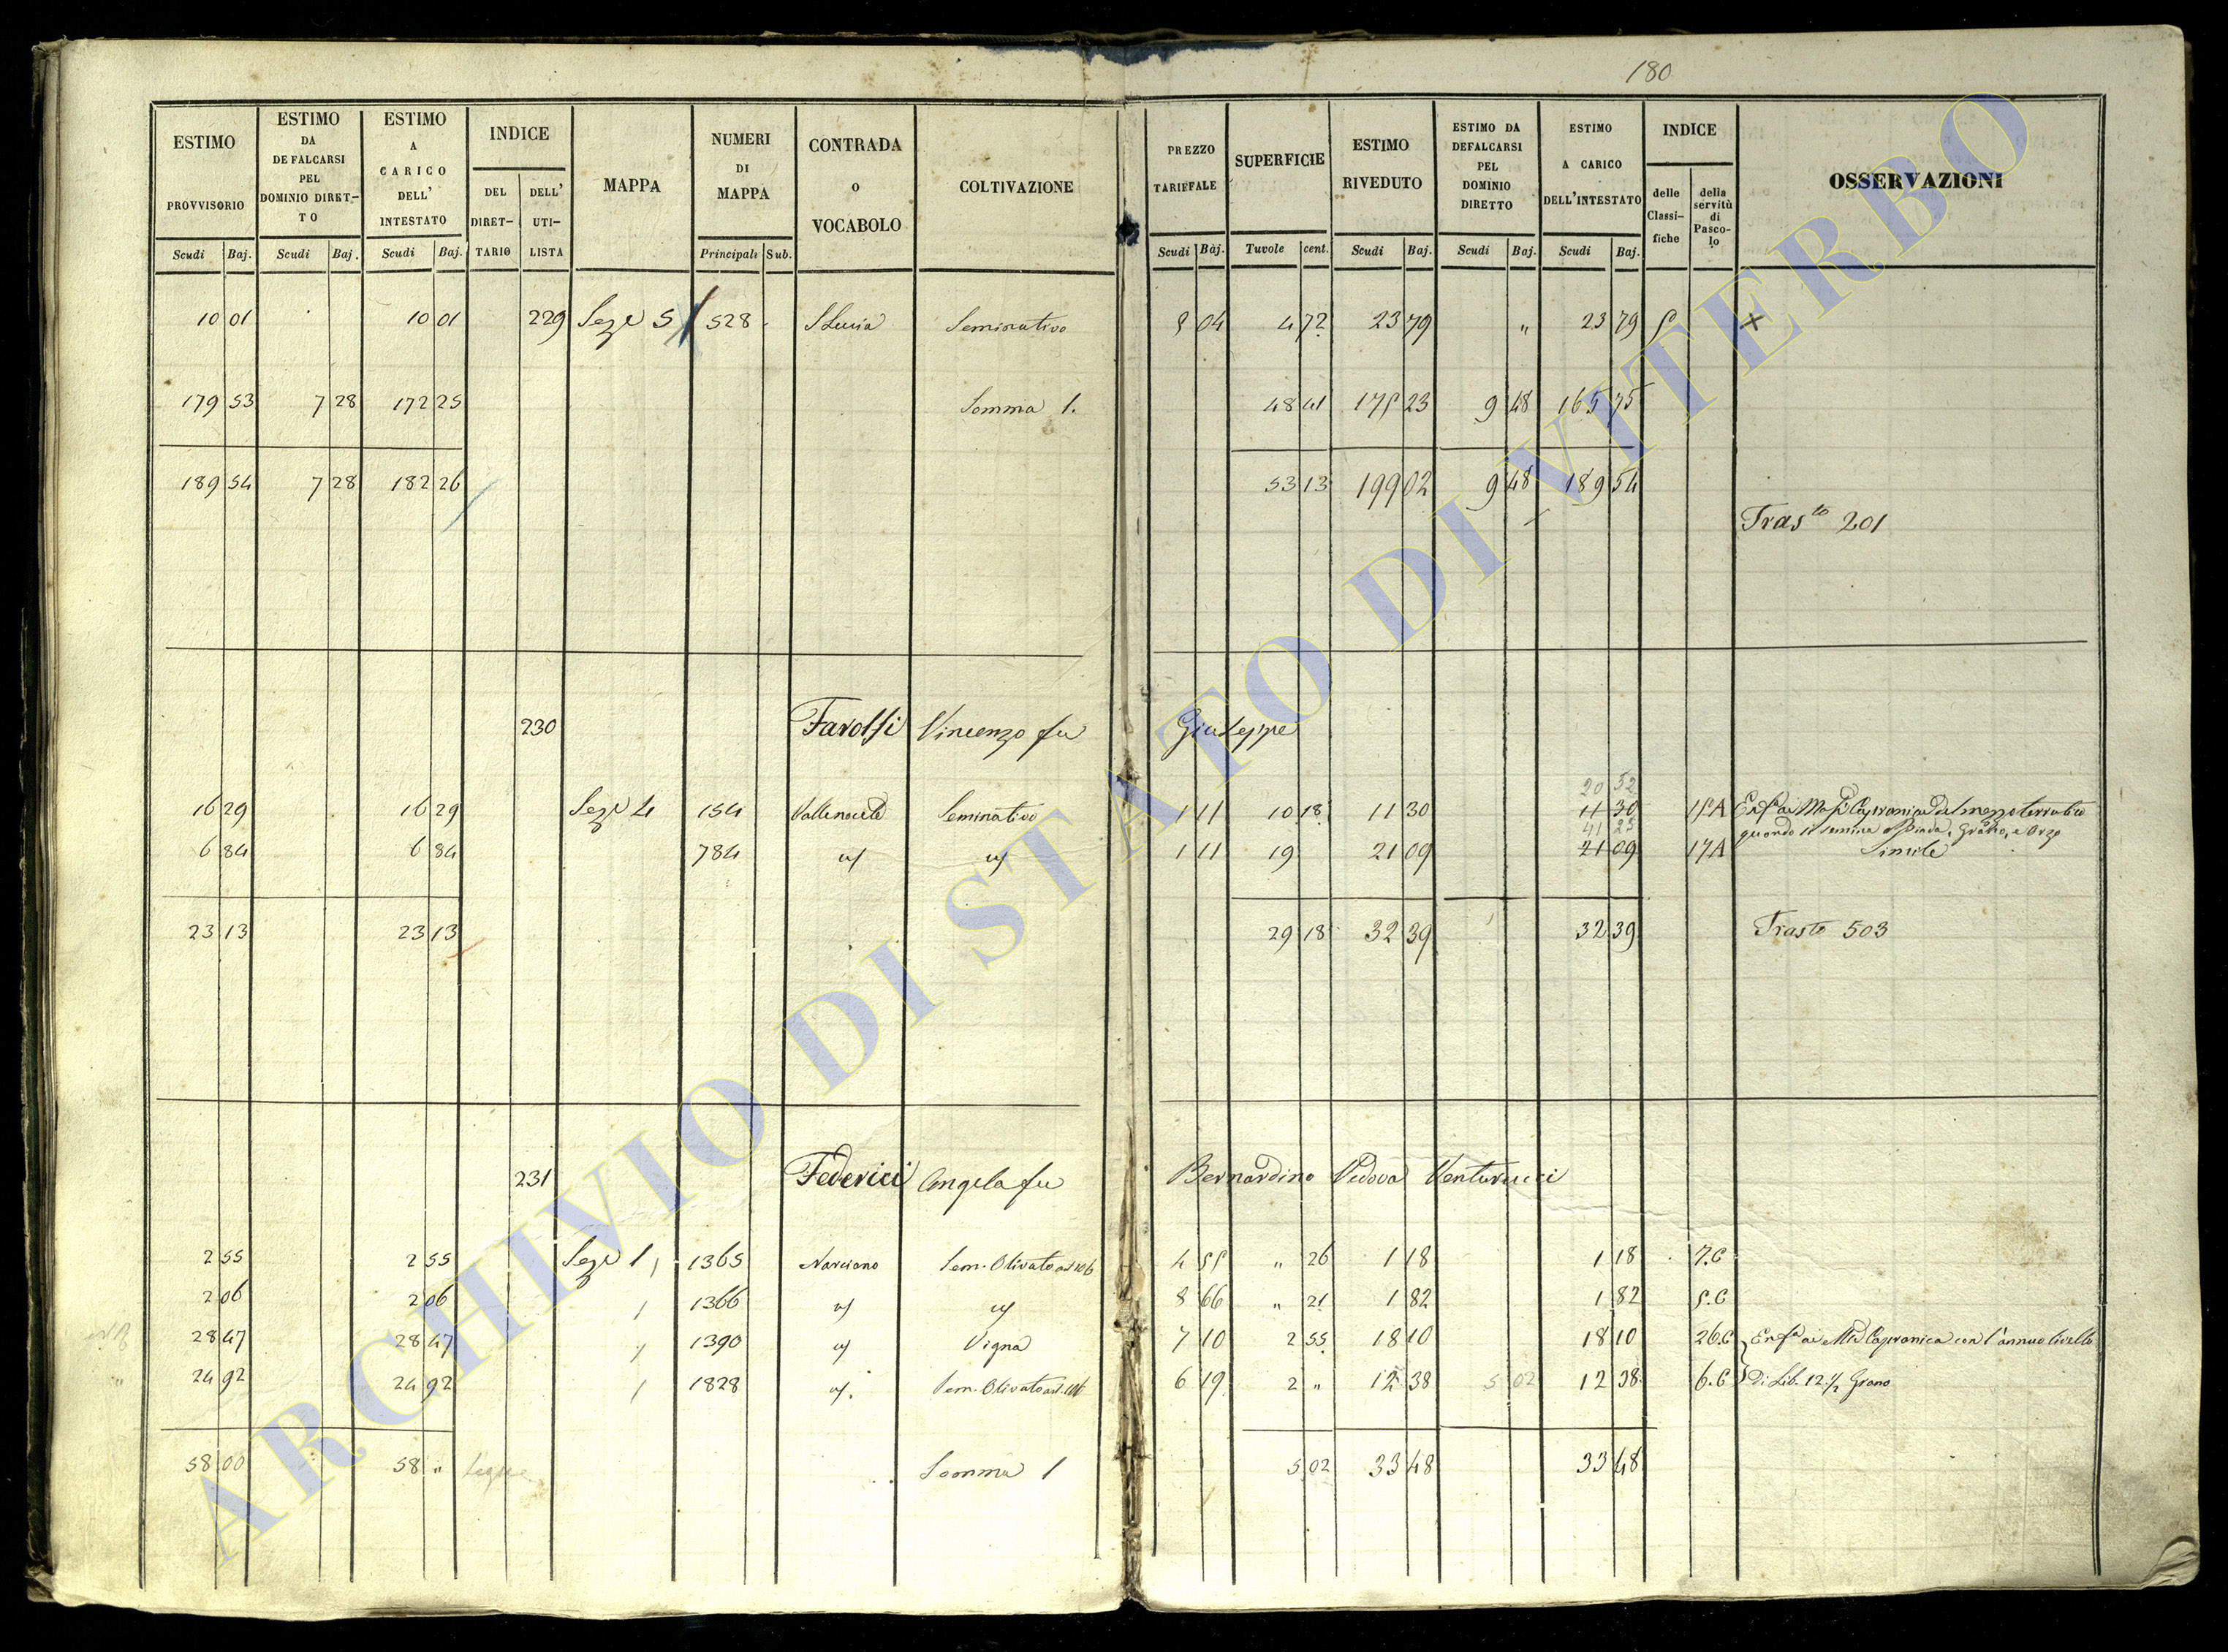 180
ESTIMO PROVVISORIO Scudi Baj.
ESTIMO DA DEFALCARSI PEL DOMINIO DIRETTO Scudi Baj.
ESTIMO A CARICO DELL' INTESTATO Scudi Baj.
INDICE DEL DIRETTARIO DELL' UTILISTA
MAPPA
NUMERI DI MAPPA Principali Sub.
CONTRADA O VOCABOLO
COLTIVAZIONE
PREZZO TARIFFALE Scudi Baj.
SUPERFICIE Tavole cent.
ESTIMO RIVEDUTO Scudi Baj.
ESTIMO DA DEFALCARSI PEL DOMINIO DIRETTO Scudi Baj.
ESTIMO A CARICO DELL'INTESTATO Scudi Baj.
INDICE delle Classifiche della servitù di Pascolo
OSSERVAZIONI
10 01 10 01 229 Seze 5 528 S Lucia Seminativo 04 4 72 23 79 " 23 79 +
179 53 7 28 172 25 Somma 1. 48 41 175 23 9 48 165 75
189 54 7 28 182 26 53 13 199 02 9 48 189 54
Tras.to 201
230 Farolfi Vincenzo fu Giuseppe
20 52
16 29 16 29 Seze 4 154 Seminativo 1 11 10 18 11 30 11 30 Capranica del mezzo terratico
41 25
quando si semina Biada, Grano, e Orzo
6 84 6 84 784 1 11 19 21 09 21 09 17A Simile
23 13 23 13 29 18 32 39 32 39 Trasto 503
231 Federici Angela fu Bernardino Vedova Venturucci
2 55 2 55 Seze 1 1365 Narciano Sem. Olivato 4 55 " 26 1 18 1 18 7.C
2 06 2 06 1366 8 66 " 21 1 82 1 82
28 47 28 47 1390 Vigna 7 10 2 55 18 10 18 10 26.C Capranica con l'annuo livello
24 92 24 92 1828 Sem. Olivato 6 19 2 " 12 38 5 02 12 38 6.C Di Lib. 12 1/2 Grano
58 00 58 " segue Somma 1 5 02 33 48 33 48
ARCHIVIO DI STATO DI VITERBO